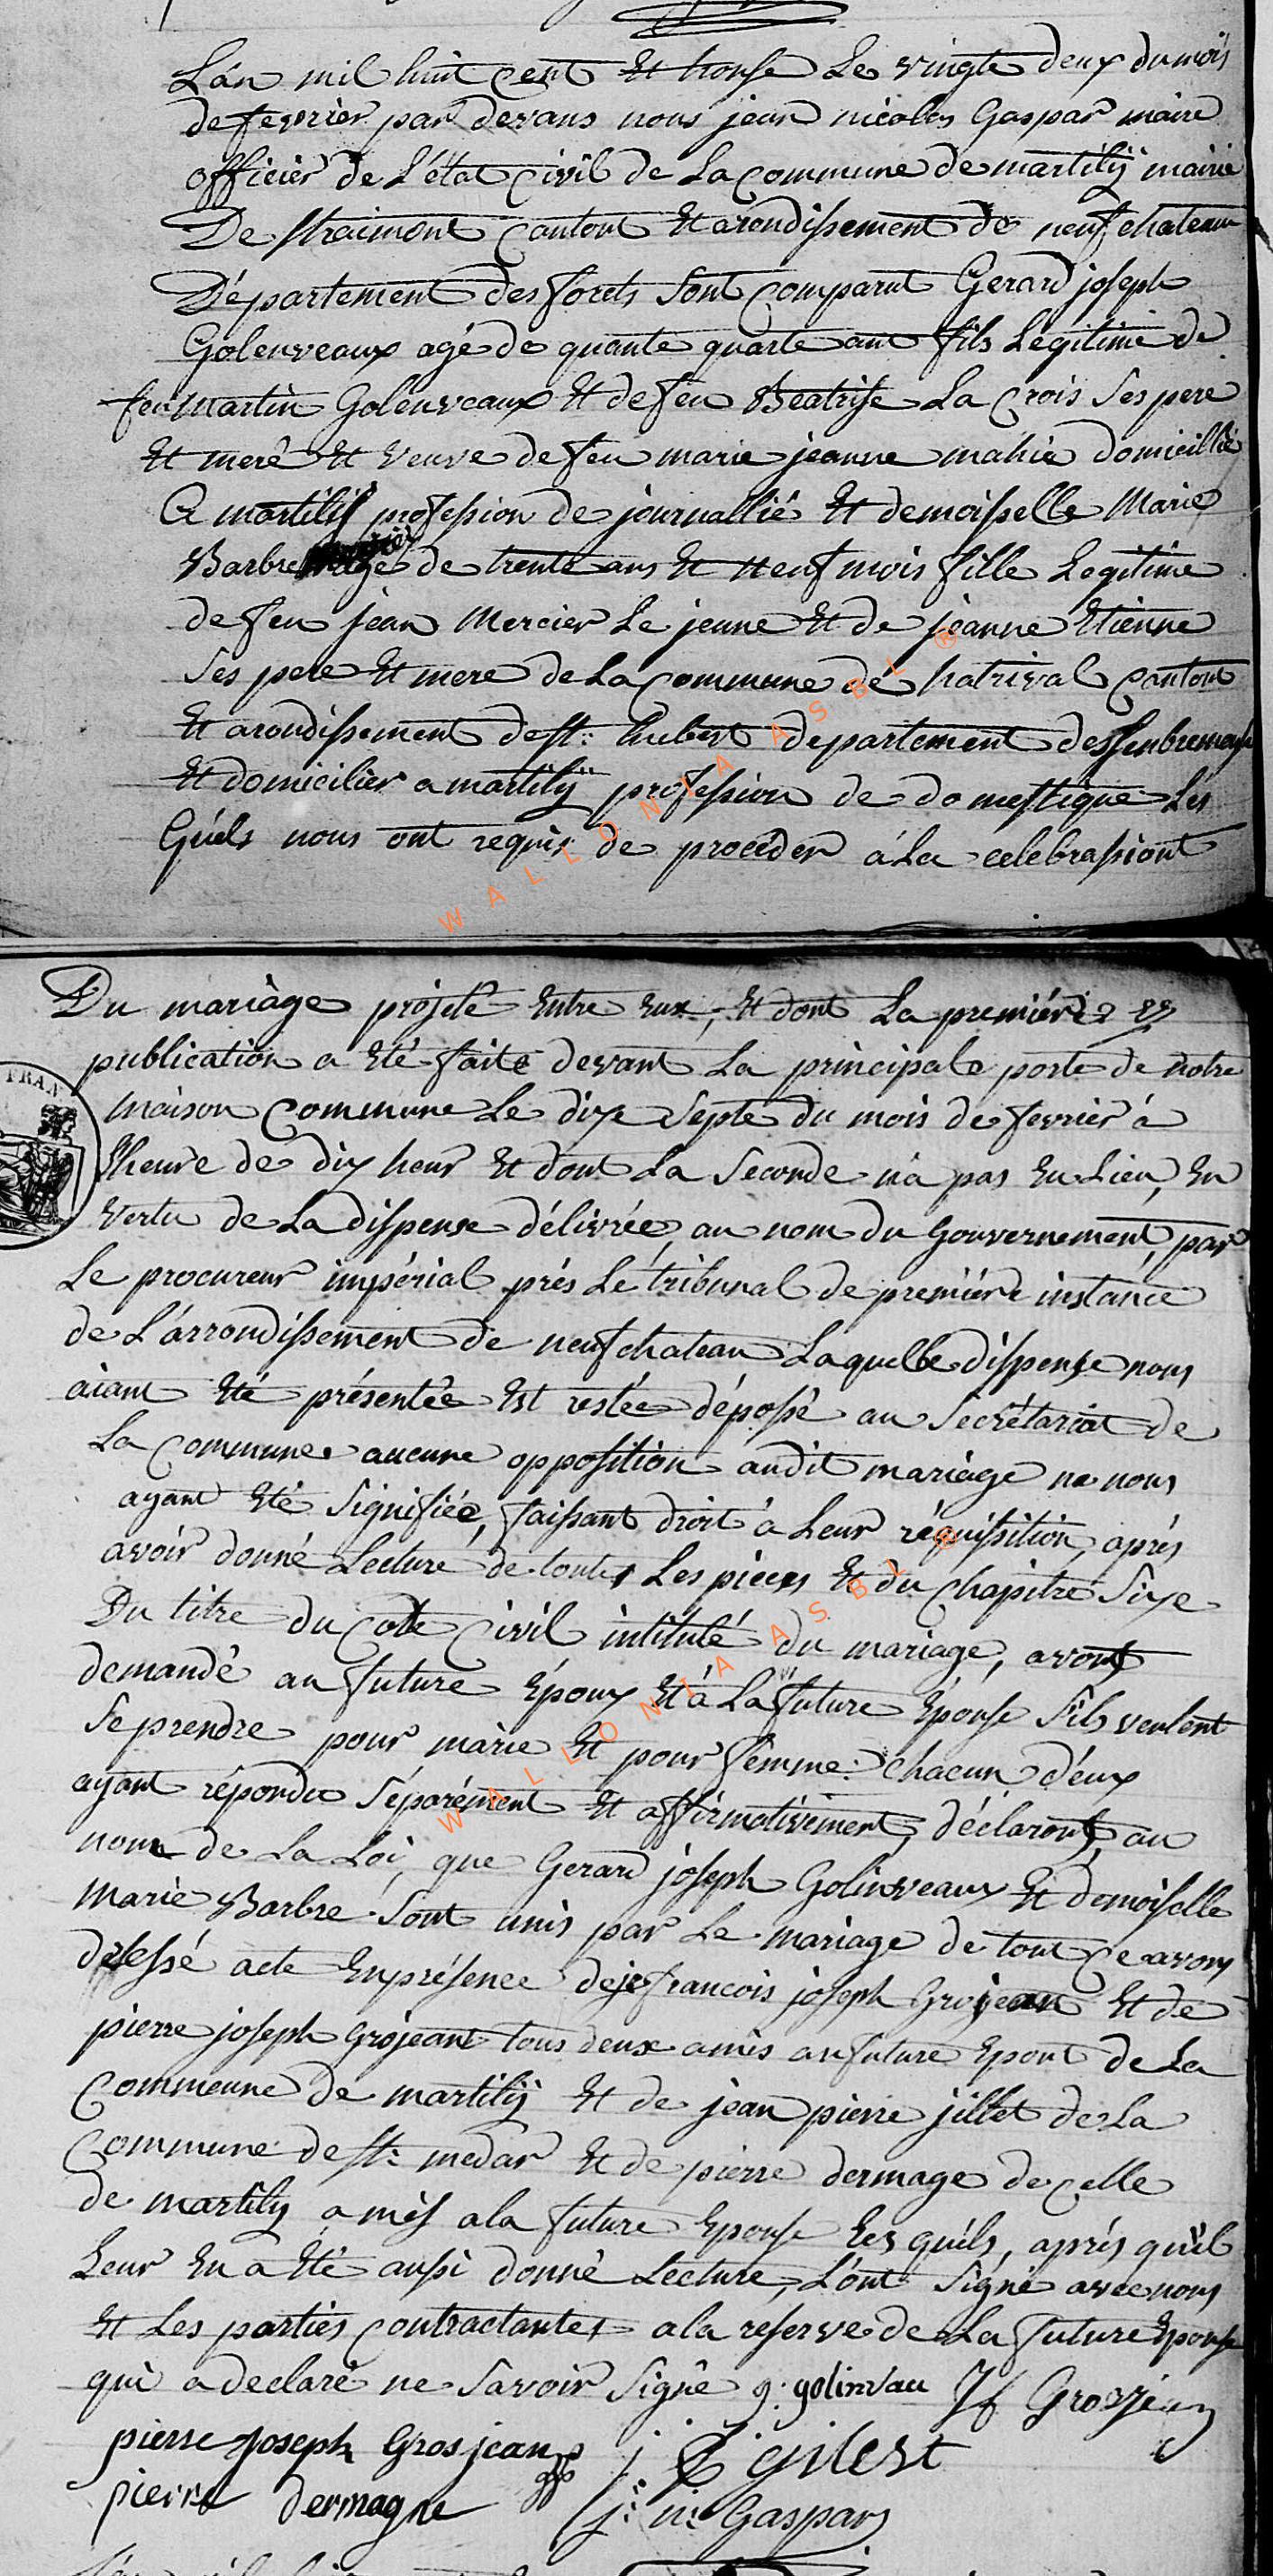 L'an mil huit cent et tronse Le vingte deux du mois
de fevrier par devans nous jean nicolas Gaspar maire
officier de L'état civil de La commune de martilÿ mairie
De straimont canton Et arondissement de neufchateau
Département des forets sont comparut Gerard joseph
Golenveaux agé de quante quarte ant fils Legitime de
feu martin Golenveaux Et de feu Beatrise La Crois ses pere
Et meré Et veuve de feu marie jeanne mahié domicillié
a martilÿ profession de journallié Et demoisselle Marie
Barbre mercier agé de trente ans Et neuf mois fille Legitime
de feu jean Mercier Le jeune Et de jeanne Etienne
ses pere Et mere de La commune de hatrival canton
Et arondissement de st: hubert departement de
Et domicilier a martilÿ profession de domestique Les
Quels nous ont requis de procéder á La celebrassiont
Du mariage projeté Entre Eux, Et dont La premiére
publication a Eté faite devant La principale porte de notre
maison commune Le dixe septe du mois de fevrier à
l'heure de dix heur Et dont La seconde n'a pas Eu Lieu, En
vertu de La dispense délivrée, au nom du Gouvernement, par
Le procureur impérial prés Le tribunal de premiére instance
de L'arrondissement de neufchateau Laquelle dispense nous
aiant Eté présentée Est restée déposé au secrétariat de
La commune aucune opposition audit mariage ne nous
ayant Eté signifiée, faissant droit á Leur réquisition, aprés
avoir donné Lecture de toutes Les pieces Et du chapitre sixe
Du titre du cote civil intitulé du mariage, avont
demandé au future Époux Et á La future Épouse s'ils veulent
se prendre pour marie Et pour femme: chacun d'eux
ayant répondu séparément Et affirmativement, déclaront, au
nom de La Loi, que Gerard joseph Golinveaux Et demoiselle
Marie Barbre sont unis par Le mariage de tout ce avons
dressé acte En présence de francois joseph Grosjean Et de
pierre joseph Grojeant tous deux amis au future Epout de La
Commeune de martilÿ Et de jean pierre jillet de La
commune de st: medar Et de pierre dermage de celle
de martily amis a la future Epouse Les quéls, aprés qu'il
Leur En a Eté aussi donné Lecture, L'ont signé avec nous
Et Les parties contractantes a la reserve de La future Epouse
qui a declaré ne savoir signé g. golinvau J f Grosjean
pierre joseph Grosjean j P gilest
pierre dermagne j: n: Gaspar
FRAN
WALLONIA ASBL ®
WALLONIA ASBL ®